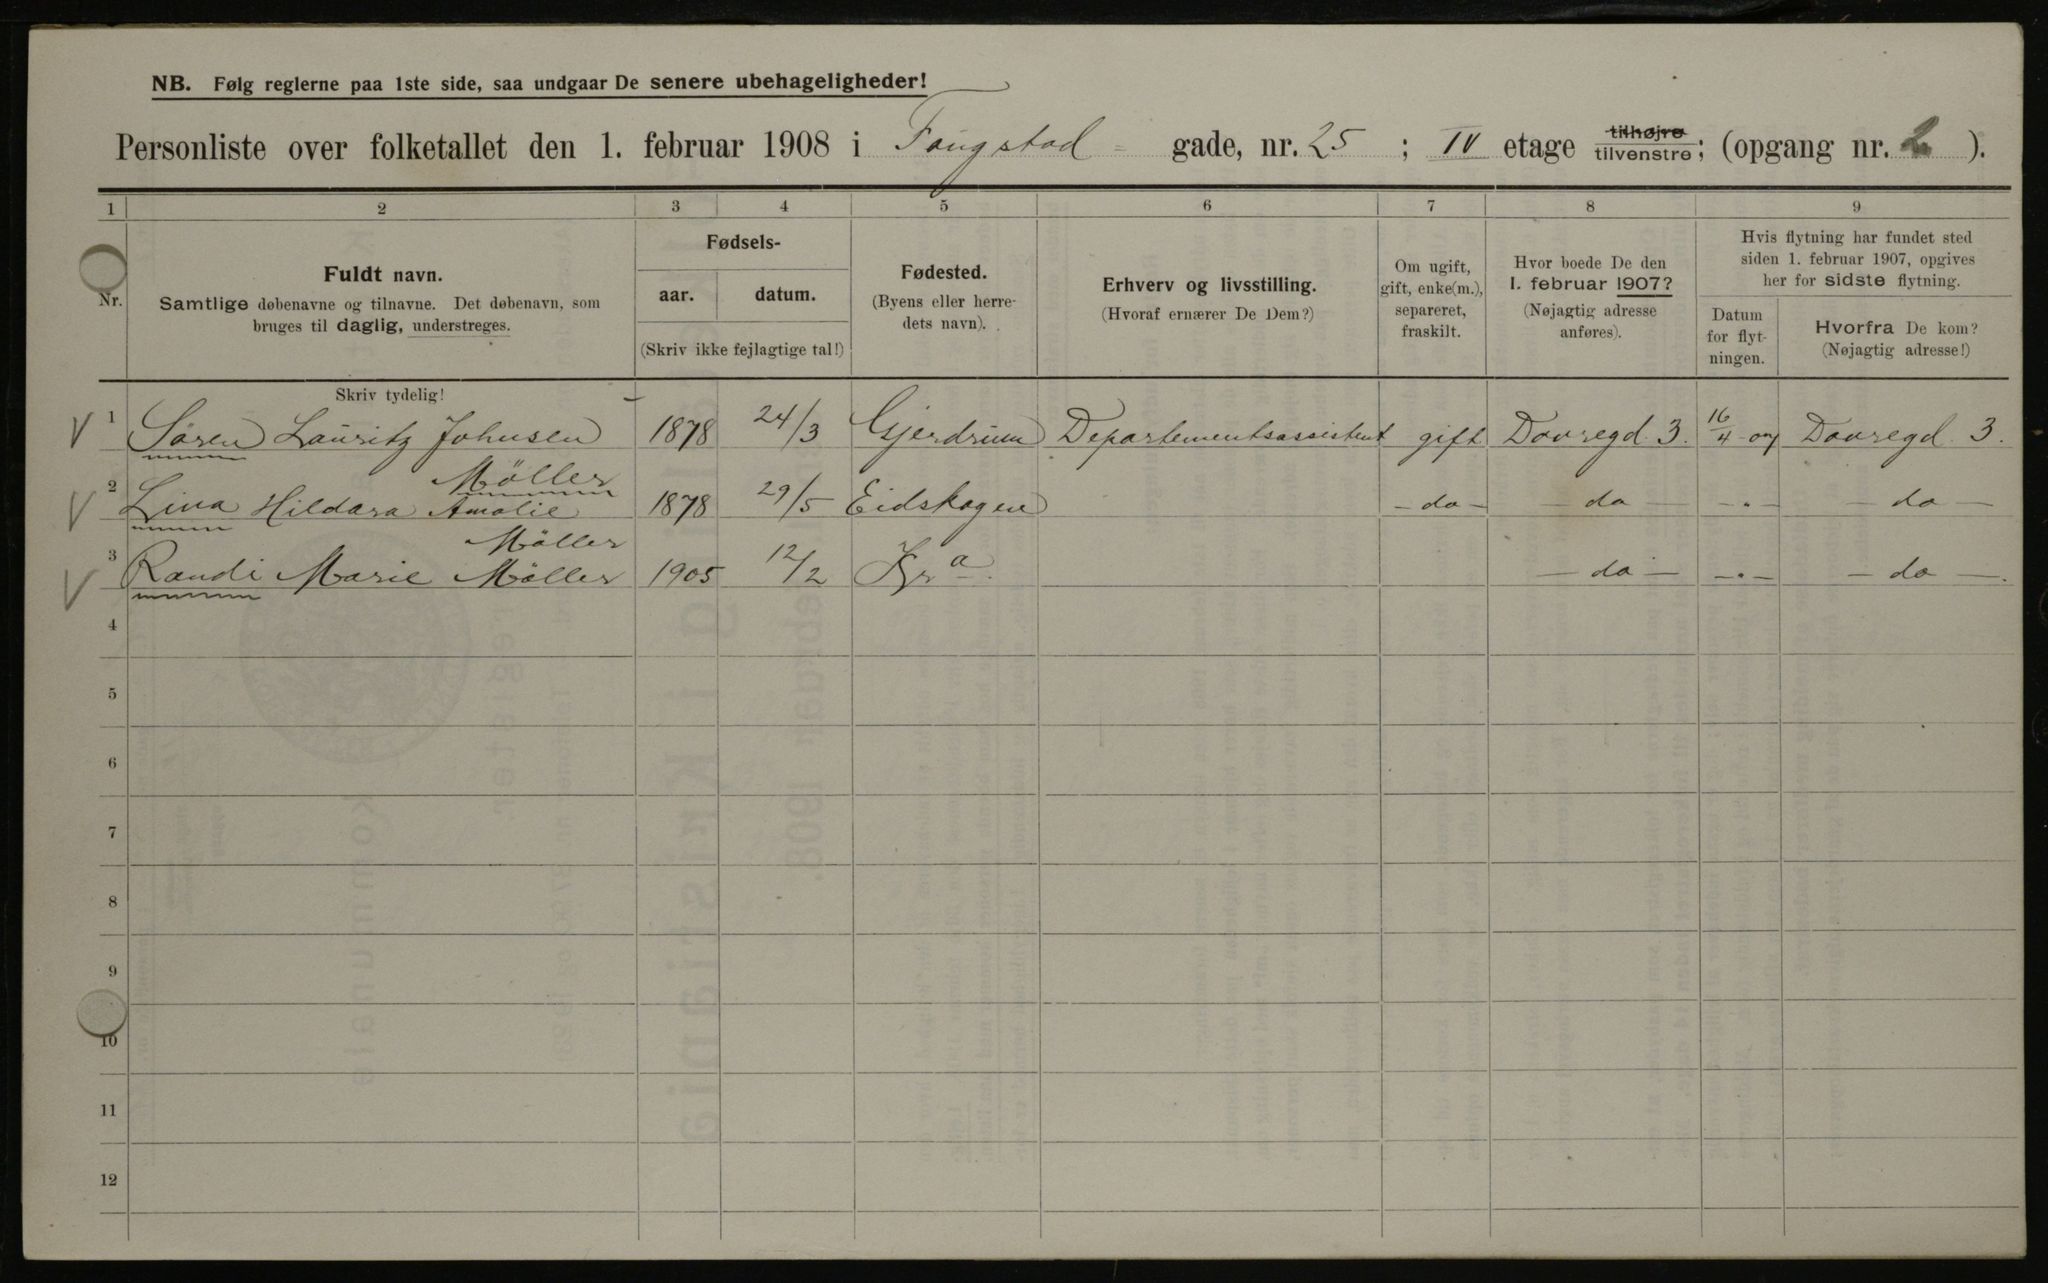 NB. Følg reglerne paa 1ste side, saa undgaar De senere ubehageligheder!
Personliste over folketallet den 1. februar 1908 i Fougstad - gade, nr. 25 ; IV etage tilhøjre tilvenstre; (opgang nr. 2 ).
1 2 3 4 5 6 7 8 9
Nr.
Fuldt navn.
Samtlige døbenavne og tilnavne. Det døbenavn, som
bruges til daglig, understreges.
Fødsels-
aar. datum.
(Skriv ikke fejlagtige tal!)
Fødested.
(Byens eller herre-
dets navn).
Erhverv og livsstilling.
(Hvoraf ernærer De Dem?)
Om ugift,
gift, enke(m.),
separeret,
fraskilt.
Hvor boede De den
1. februar 1907?
(Nøjagtig adresse
anføres).
Hvis flytning har fundet sted
siden 1. februar 1907, opgives
her for sidste flytning.
Datum
for flyt-
ningen.
Hvorfra De kom?
(Nøjagtig adresse!)
Skriv tydelig!
1 Sören Lauritz Johnsen 1878 24/3 Gjerdrum Departementsassistent gift Dovregd. 3. 16/4 - 07 Dovregd. 3.
Möller
2 Lina Hildara Amalie 1878 29/5 Eidskogen - do - - do - - " - - do -
Möller
3 Randi Marie Möller 1905 12/2 Kra - do - - " - - do -.
4
5
6
7
8
9
10
11
12